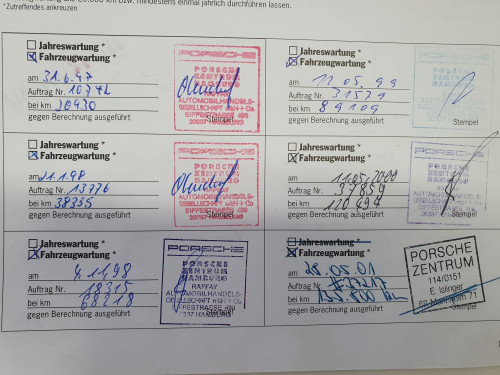 km bzw. mindestens einmal jährlich durchführen lassen.
*Zutreffendes ankreuzen
Jahreswartung *
Fahrzeugwartung *
am
Auftrag Nr. 10742
bei km 20430
gegen Berechnung ausgeführt
PORSCHE
PORSCHE
ZENTRUM
HAMBURG
RAFFAY
AUTOMOBILHANDELS-
GESELLSCHAFT mbH + Co
EIFFESTRASSE 498
20537 HAMBURG
Stempel
Jahreswartung *
Fahrzeugwartung *
am 11.05.99
Auftrag Nr. 31579
bei km 89109
gegen Berechnung ausgeführt
Stempel
Jahreswartung *
Fahrzeugwartung *
am 21.1.98
Auftrag Nr. 13776
bei km 38335
gegen Berechnung ausgeführt
PORSCHE
PORSCHE
ZENTRUM
HAMBURG
RAFFAY
AUTOMOBILHANDELS-
GESELLSCHAFT mbH + Co
EIFFESTRASSE 498
20537 HAMBURG
Stempel
Jahreswartung *
Fahrzeugwartung *
am 11.05.2000
Auftrag Nr. 37859
bei km 120497
gegen Berechnung ausgeführt
Stempel
Jahreswartung *
Fahrzeugwartung *
am 4.11.98
Auftrag Nr. 18315
bei km 68218
gegen Berechnung ausgeführt
PORSCHE
PORSCHE
ZENTRUM
HAMBURG
RAFFAY
AUTOMOBILHANDELS-
GESELLSCHAFT mbH + Co
EIFFESTRASSE 498
20537 HAMBURG
Stempel
Jahreswartung *
Fahrzeugwartung *
am 28.05.01
Auftrag Nr.
bei km
gegen Berechnung ausgeführt
PORSCHE
ZENTRUM
114/0151
E. Islinger
68 Mannheim 71
Stempel